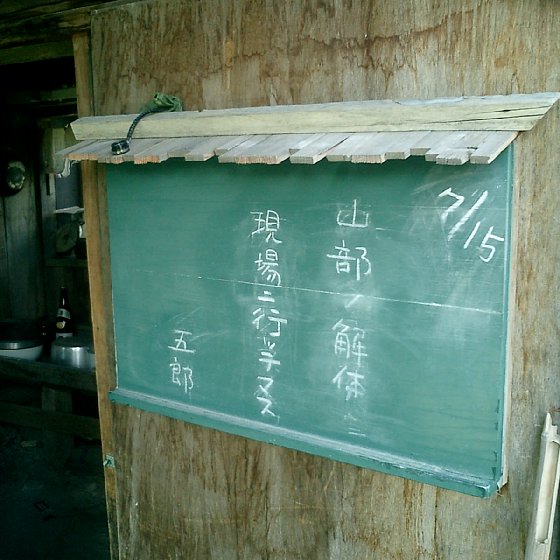 7/15
山部ノ解体
現場ニ行ッテマス
五郎